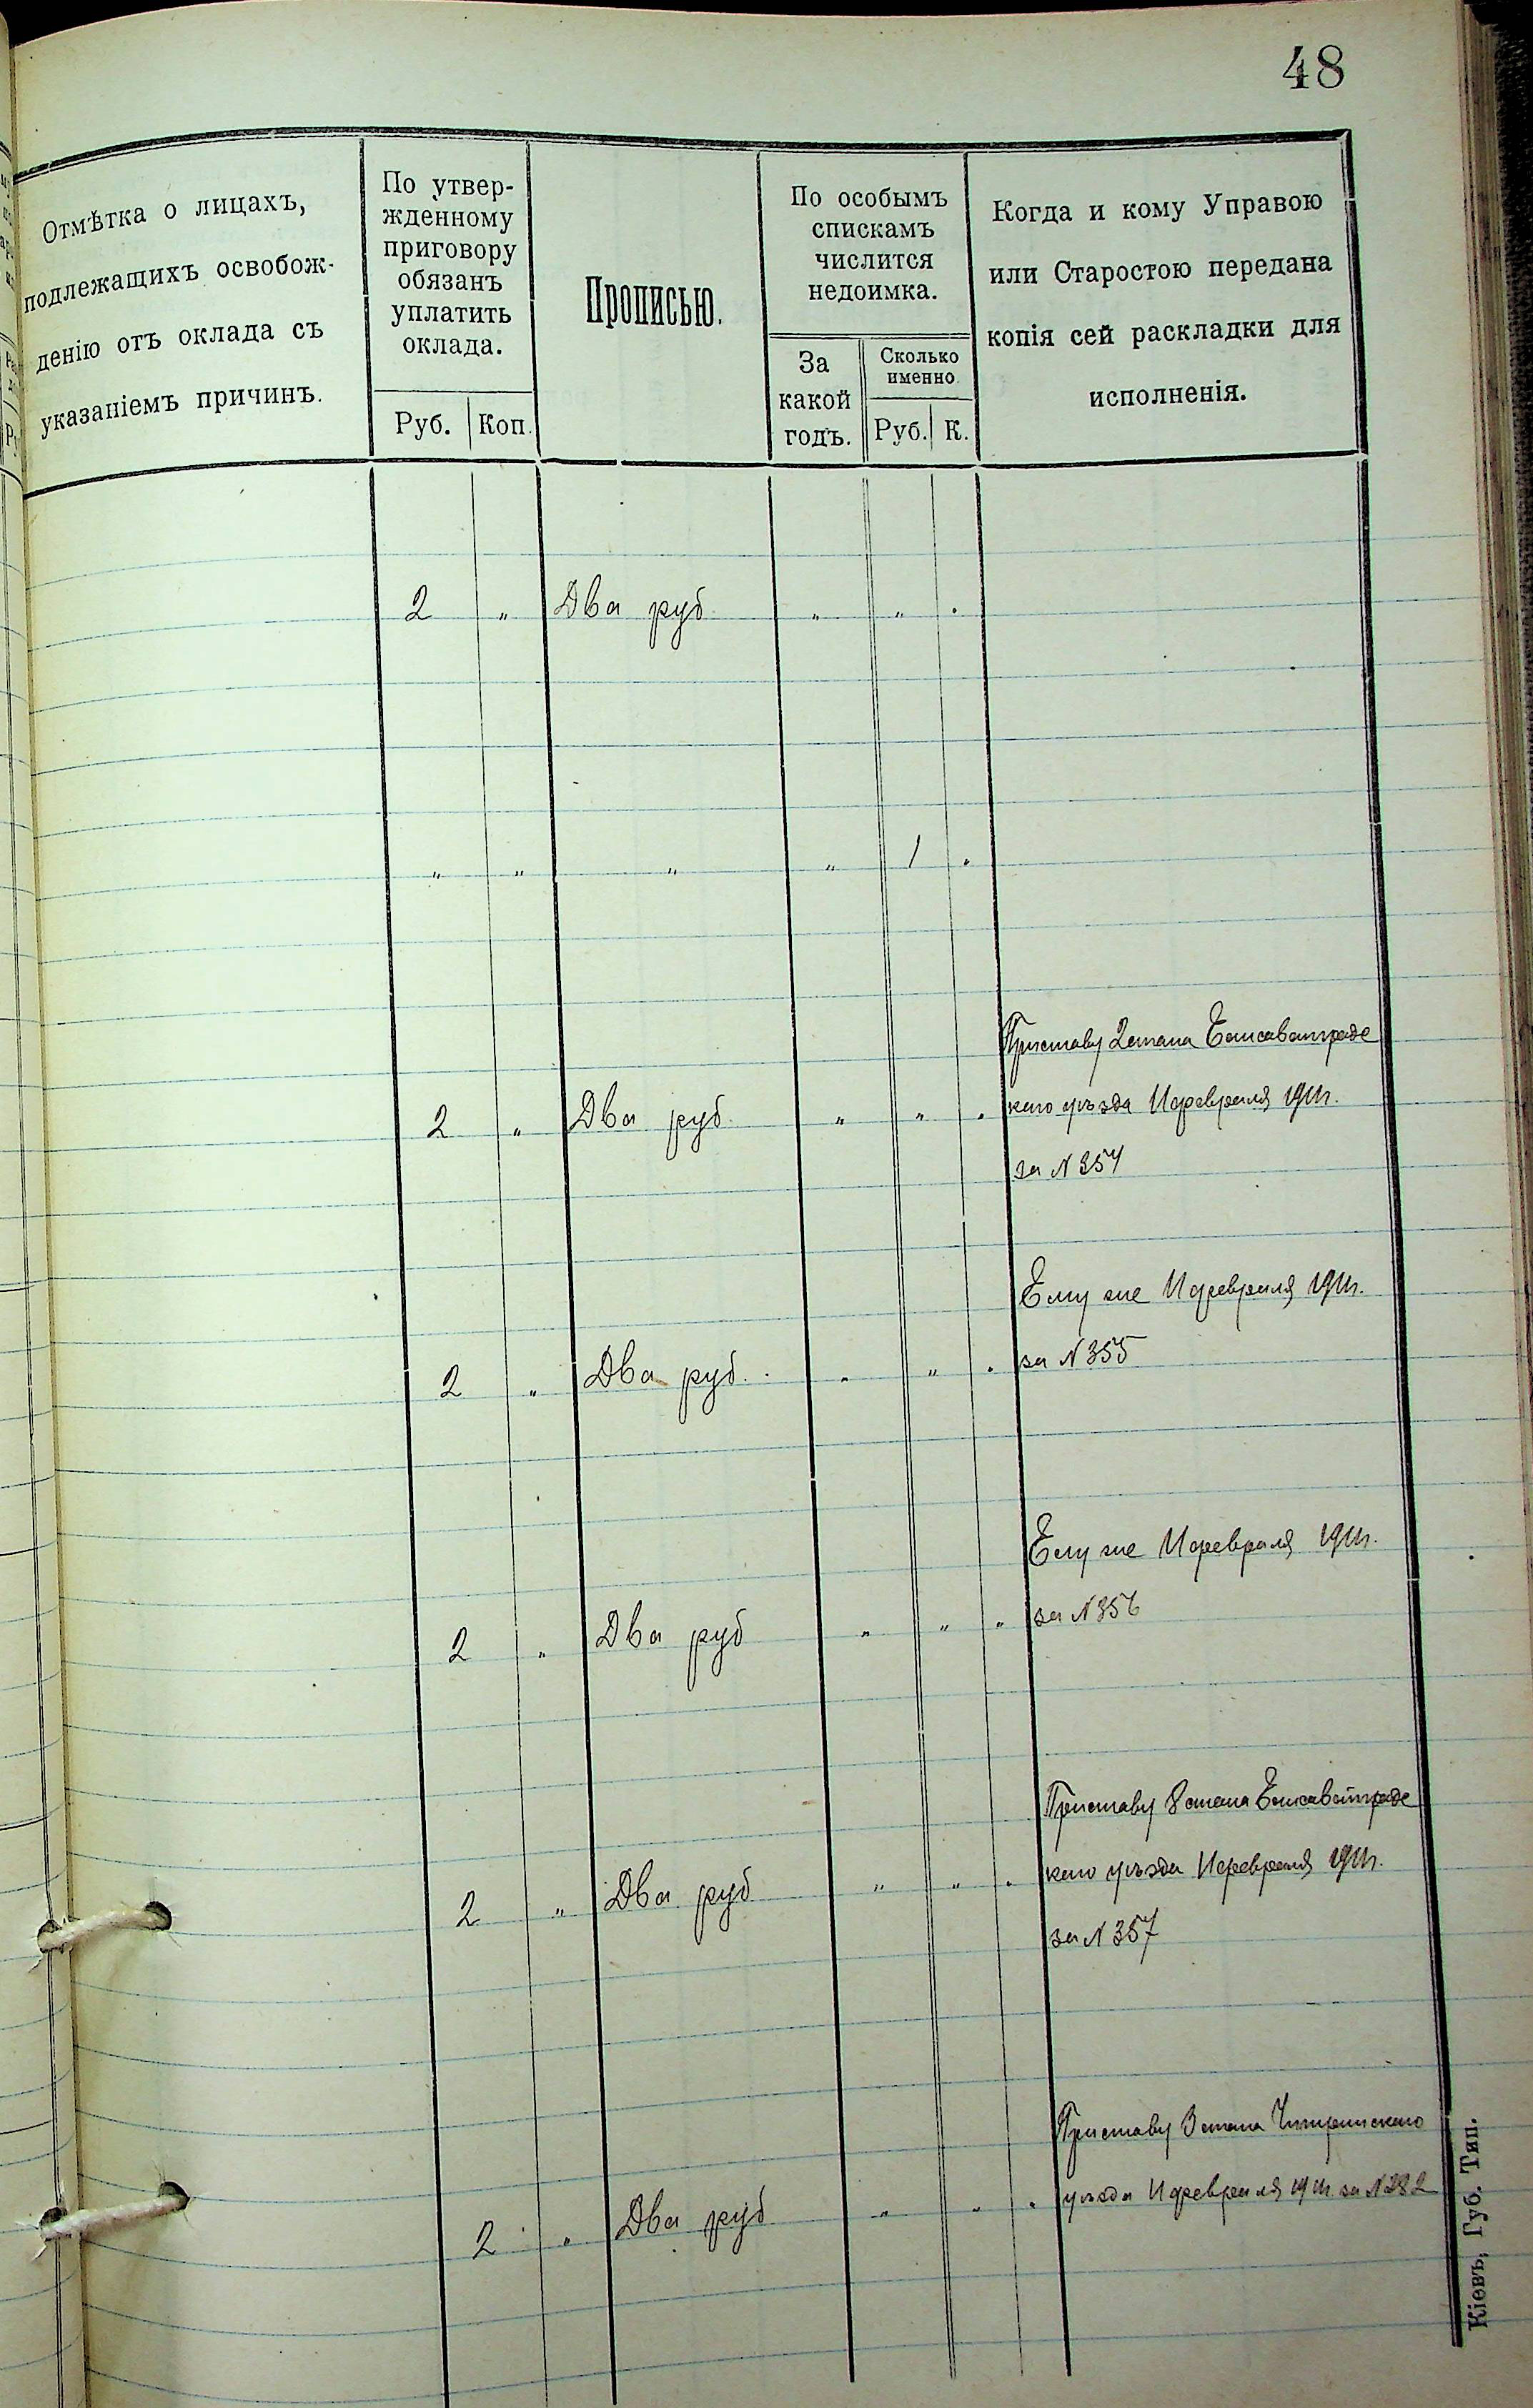 48
Отмѣтка о лицахъ,
подлежащихъ освобож-
денію отъ оклада съ
указаніемъ причинъ.
По утвер-
жденному
приговору
обязанъ
уплатить
оклада.
Руб. Коп.
Прописью.
По особымъ
спискамъ
числится
недоимка.
За
какой
годъ.
Сколько
именно
Руб. К.
Когда и кому Управою
или Старостою передана
копія сей раскладки для
исполненія.
2 " Два руб " " "
" " " " 1 "
Приставу 2 стана Елисаветградс
2 " Два руб. " " " каго уѣзда 11 февраля 1911 г.
за N 354
Ему же 11 февраля 1911 г.
2 " Два руб. " " " за N 355
Ему же 11 февраля 1911 г.
2 " Два руб " " " за N 356
Приставу стана Елисаветградс
2 " Два руб " " " каго уѣзда 11 февраля 1911 г.
за N 357
Приставу 3 стана Чигиринскаго
2 " Два руб " " " уѣзда 11 февраля 1911 г. за N 282
Кіевъ, Губ. Тип.